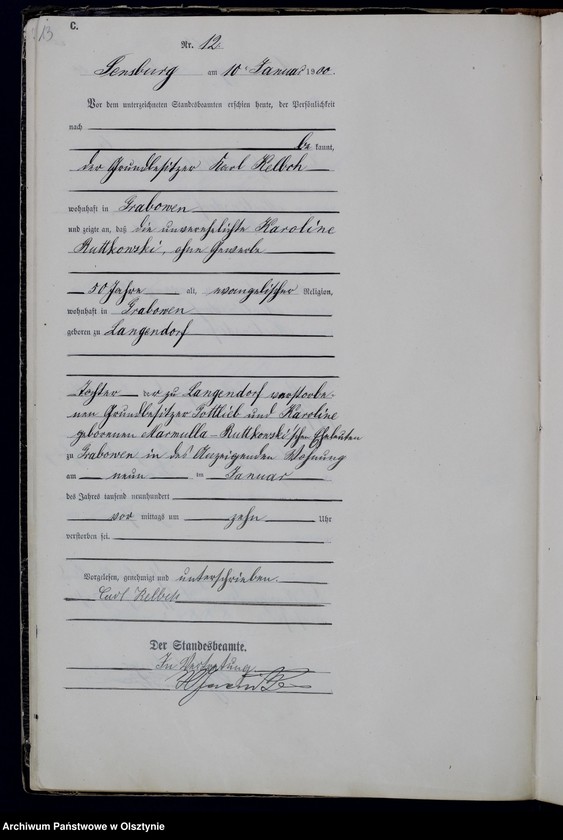 13
C.
Nr. 12.
Sensburg am 10 Januar 1900.
Vor dem unterzeichneten Standesbeamten erschien heute, der Persönlichkeit
nach
be kannt,
der Grundbesitzer Karl Kelbch
wohnhaft in Grabowen
und zeigte an, daß die unverehelichte Karoline
Ruttkowski, ohne Gewerbe
50 Jahre alt, evangelischer Religion,
wohnhaft in Grabowen
geboren zu Langendorf
Tochter der zu Langendorf verstorbe-
nen Grundbesitzer Gottlieb und Karoline
geborenen Marmulla-Ruttkowski'schen Eheleuten
zu Grabowen in des Anzeigenden Wohnung
am neun ten Januar
des Jahres tausend neunhundert
vor mittags um zehn Uhr
verstorben sei.
Vorgelesen, genehmigt und unterschrieben
Carl Kelbch
Der Standesbeamte.
In Vertretung
Archiwum Państwowe w Olsztynie